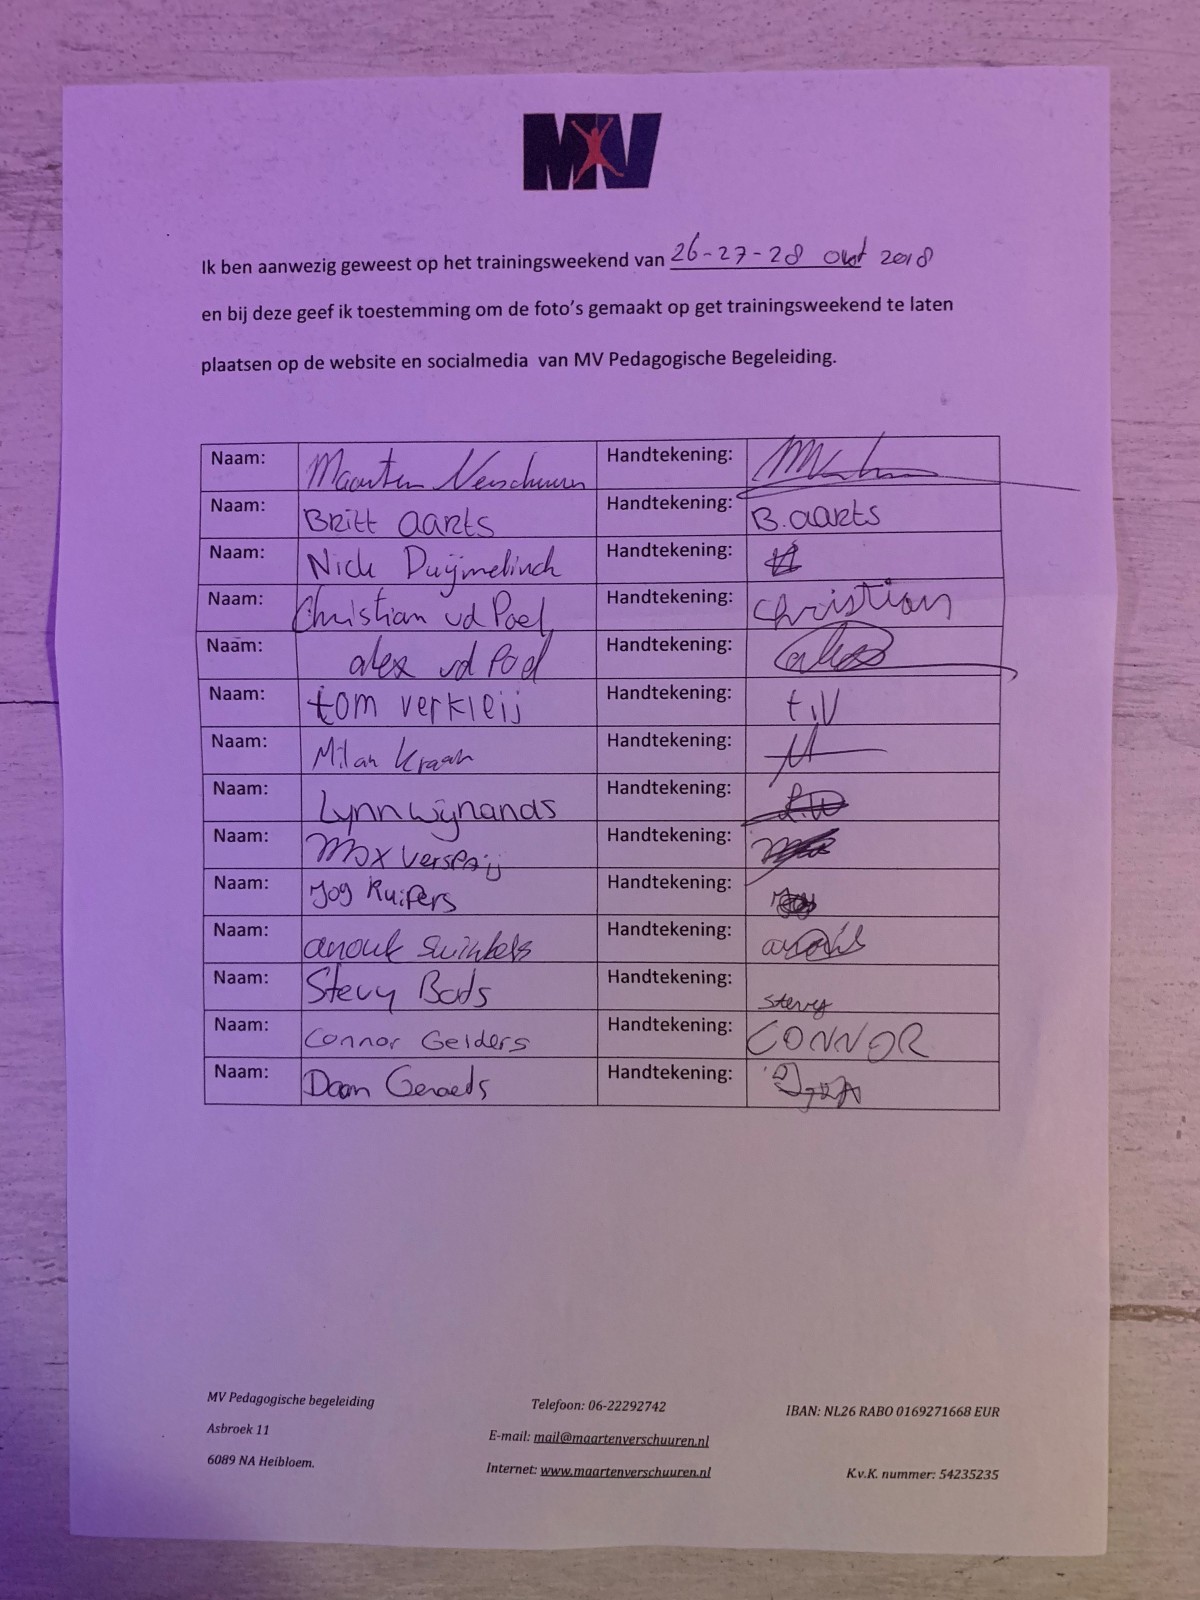 MV
Ik ben aanwezig geweest op het trainingsweekend van 26-27-28 okt 2018
en bij deze geef ik toestemming om de foto's gemaakt op get trainingsweekend te laten
plaatsen op de website en socialmedia van MV Pedagogische Begeleiding.
Naam: Maarten Verschuuren Handtekening:
Naam: Britt Aarts Handtekening: B. Aarts
Naam: Nick Duijmelinck Handtekening:
Naam: Christian vd Poel Handtekening: Christian
Naam: alex vd Poel Handtekening: alex
Naam: tom verkleij Handtekening: t.V
Naam: Milan Kraan Handtekening:
Naam: Lynn Wijnands Handtekening: L.W
Naam: Max Verspaij Handtekening:
Naam: Joy Kuipers Handtekening:
Naam: anouk Swinkels Handtekening: anouk
Naam: Stevy Bods Handtekening: Stevy
Naam: Connor Gelders Handtekening: CONNOR
Naam: Daan Geraeds Handtekening:
MV Pedagogische begeleiding Telefoon: 06-22292742 IBAN: NL26 RABO 0169271668 EUR
Asbroek 11 E-mail: mail@maartenverschuuren.nl
6089 NA Heibloem. Internet: www.maartenverschuuren.nl K.v.K. nummer: 54235235